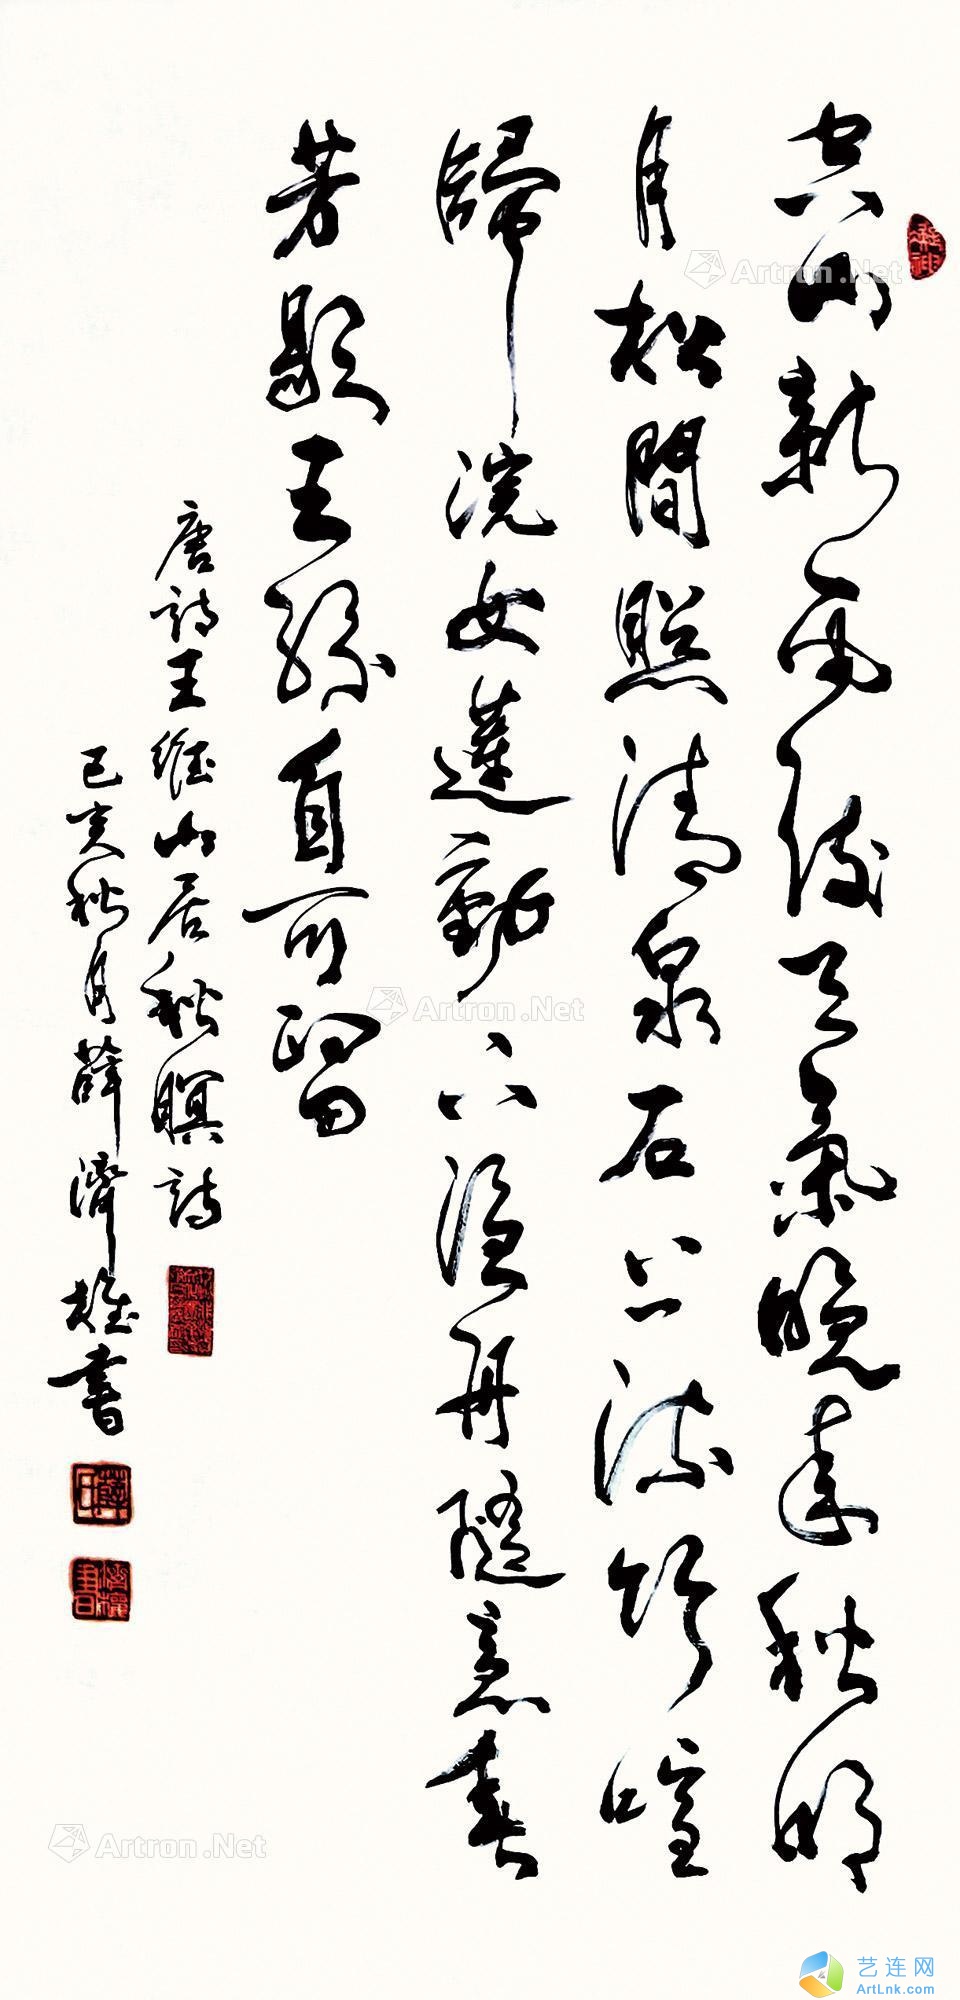 空山新雨後天氣晚來秋明
月松間照清泉石上流竹喧
歸浣女蓮動下漁舟隨意春
芳歇王孫自可留
唐詩王維山居秋暝詩
己亥秋月薛濟雄書
Artron.Net
Artron.Net
Artron.Net
艺连网
ArtLnk.com